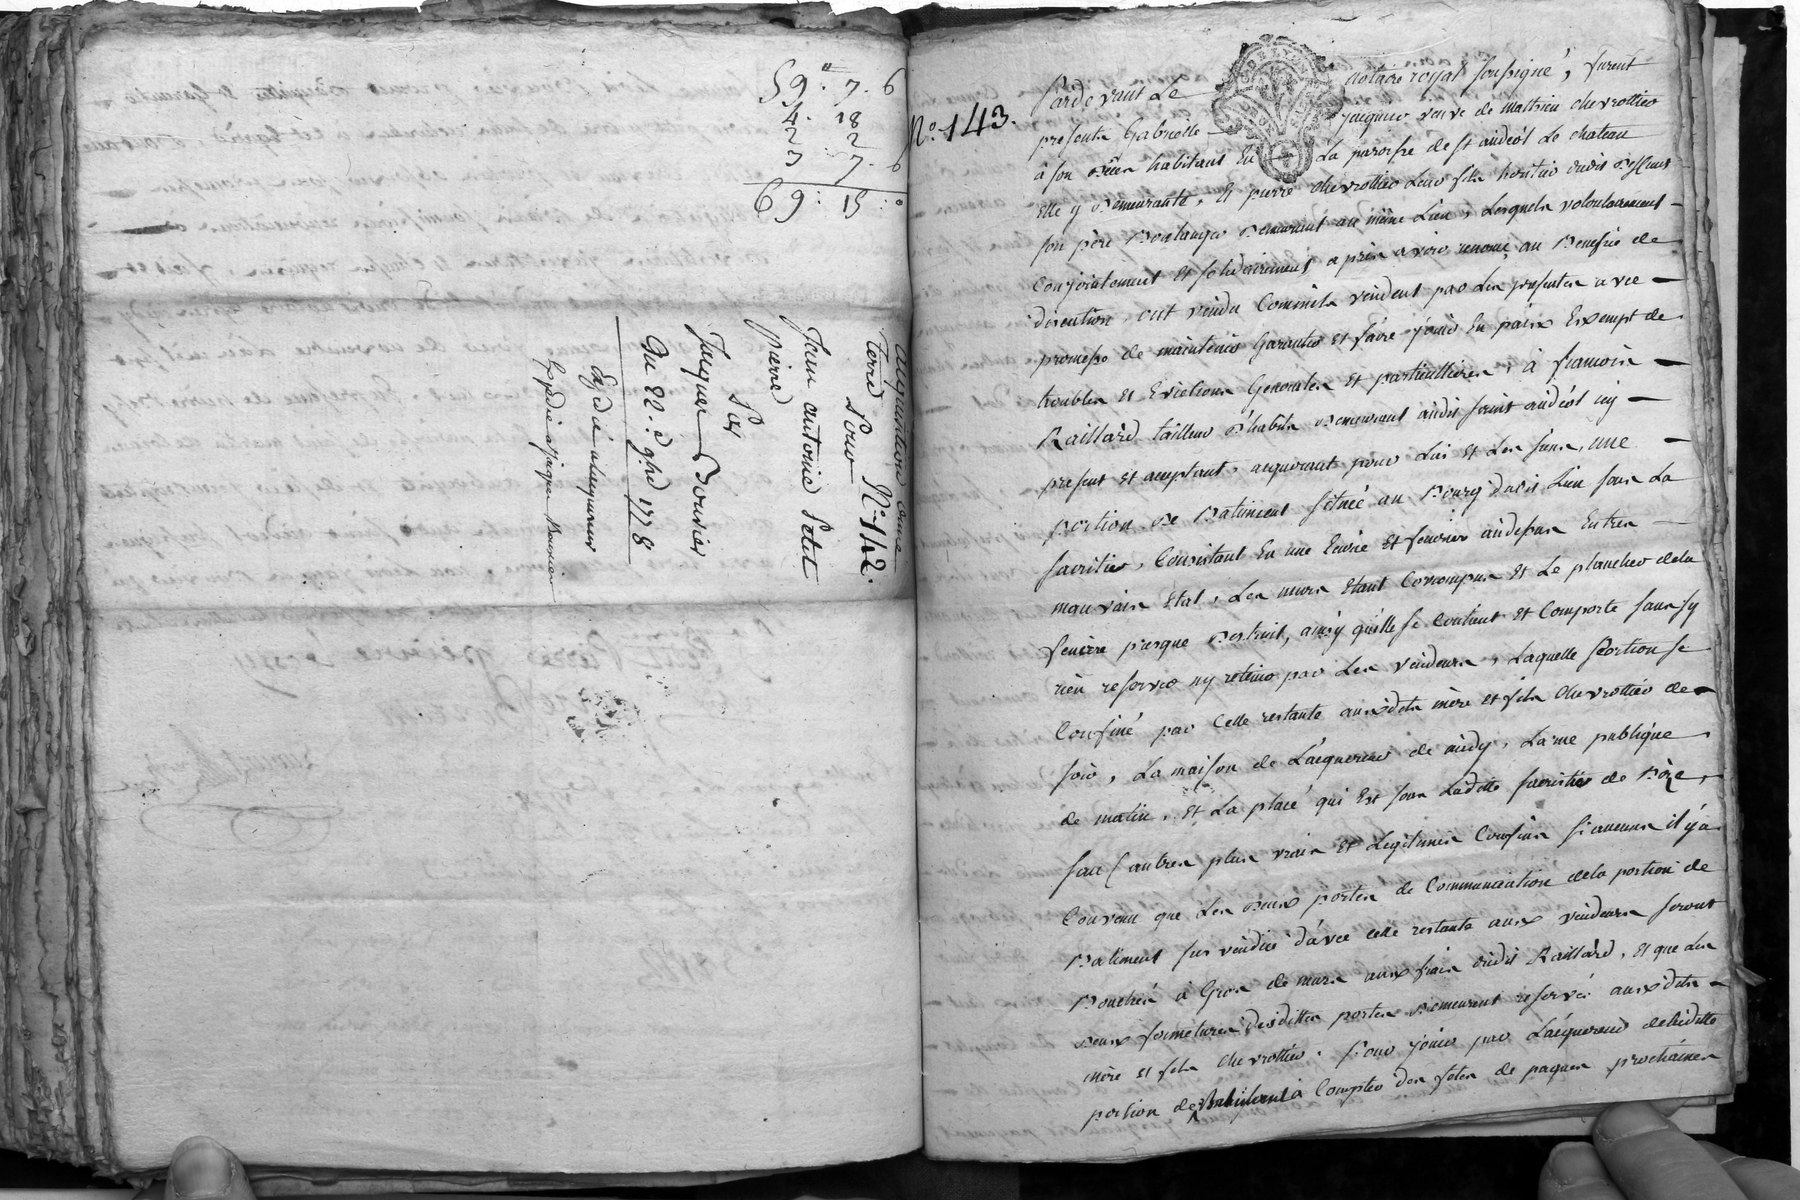 59" 7. 6
4. 18
2 2
3 7. 6
69: 15: 0
acquisition d'une
terre N.º 142.
Pour
Jean antoine Petit
pierre
Par
Jacques Bouvier
Du 22. 9bre 1778
Expedié a l'acquereur
N.º 143.
Pardevant Le notaire royal soussigné, furent
presents Gabrielle Jaquier veuve de mathieu chevrottier
à son deces habitant En La paroisse de st andeol Le chateau
Elle y Demeurante, Et pierre chevrottier Leur fils heritier dudit Deffunt
son père Boulanger Demeurant au même Lieu, Lesquels volontairement
Conjointement et solidairement, après avoir renoncé au Benefice de
discution, ont vendu Comme ils vendent par Les presentes avec
promesse de maintenir Garantir et faire jouir En paix Exempt de
troubles et Evictions Generales et particullieres, à francois
Raillard tailleur d'habits Demeurant audit saint andéol icy
present et acceptant, acquerant pour Lui et Les siens, une
Portion De Batiment située au Bourg dudit Lieu sous La
sacristie, Consistant En une Ecurie Et feniere audessus En tres
mauvais Etat, Les murs Etant Corrompus Et Le plancher dela
feniere presque Detruit, ainsy qu'elle se Contient et Comporte sans y
rien reserver ny retenir par Les vendeurs, Laquelle Portion se
Confine par Celle restante auxdits mère et fils Chevrottier de
soir, La maison de L'acquereur de midy, La rue publique
de matin, Et La place qui Est sous Ladite sacristie de Bize,
sauf autres plus vrais et Legitimes Confins si aucuns il y a
Convenu que Les Deux portes de Communication dela portion de
Batiment sus vendue d'avec celle restante aux vendeurs seront
Bouchés à Gros de murs aux frais dudit Raillard, Et que Les
Deux fermetures desdittes portes Demeurent reservés auxdits
mère et fils chevrottier. Pour jouir par L'acquereur de laditte
portion de Batiment à Compter des fetes de paques prochaines